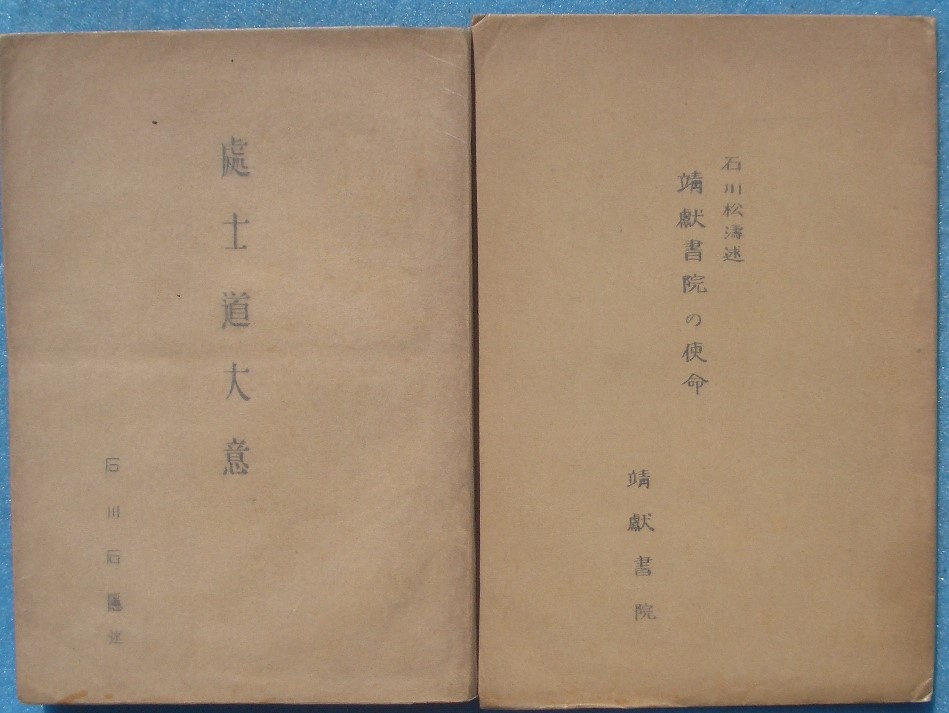 處士道大意
石川石應述
石川松濤述
靖獻書院の使命
靖獻書院